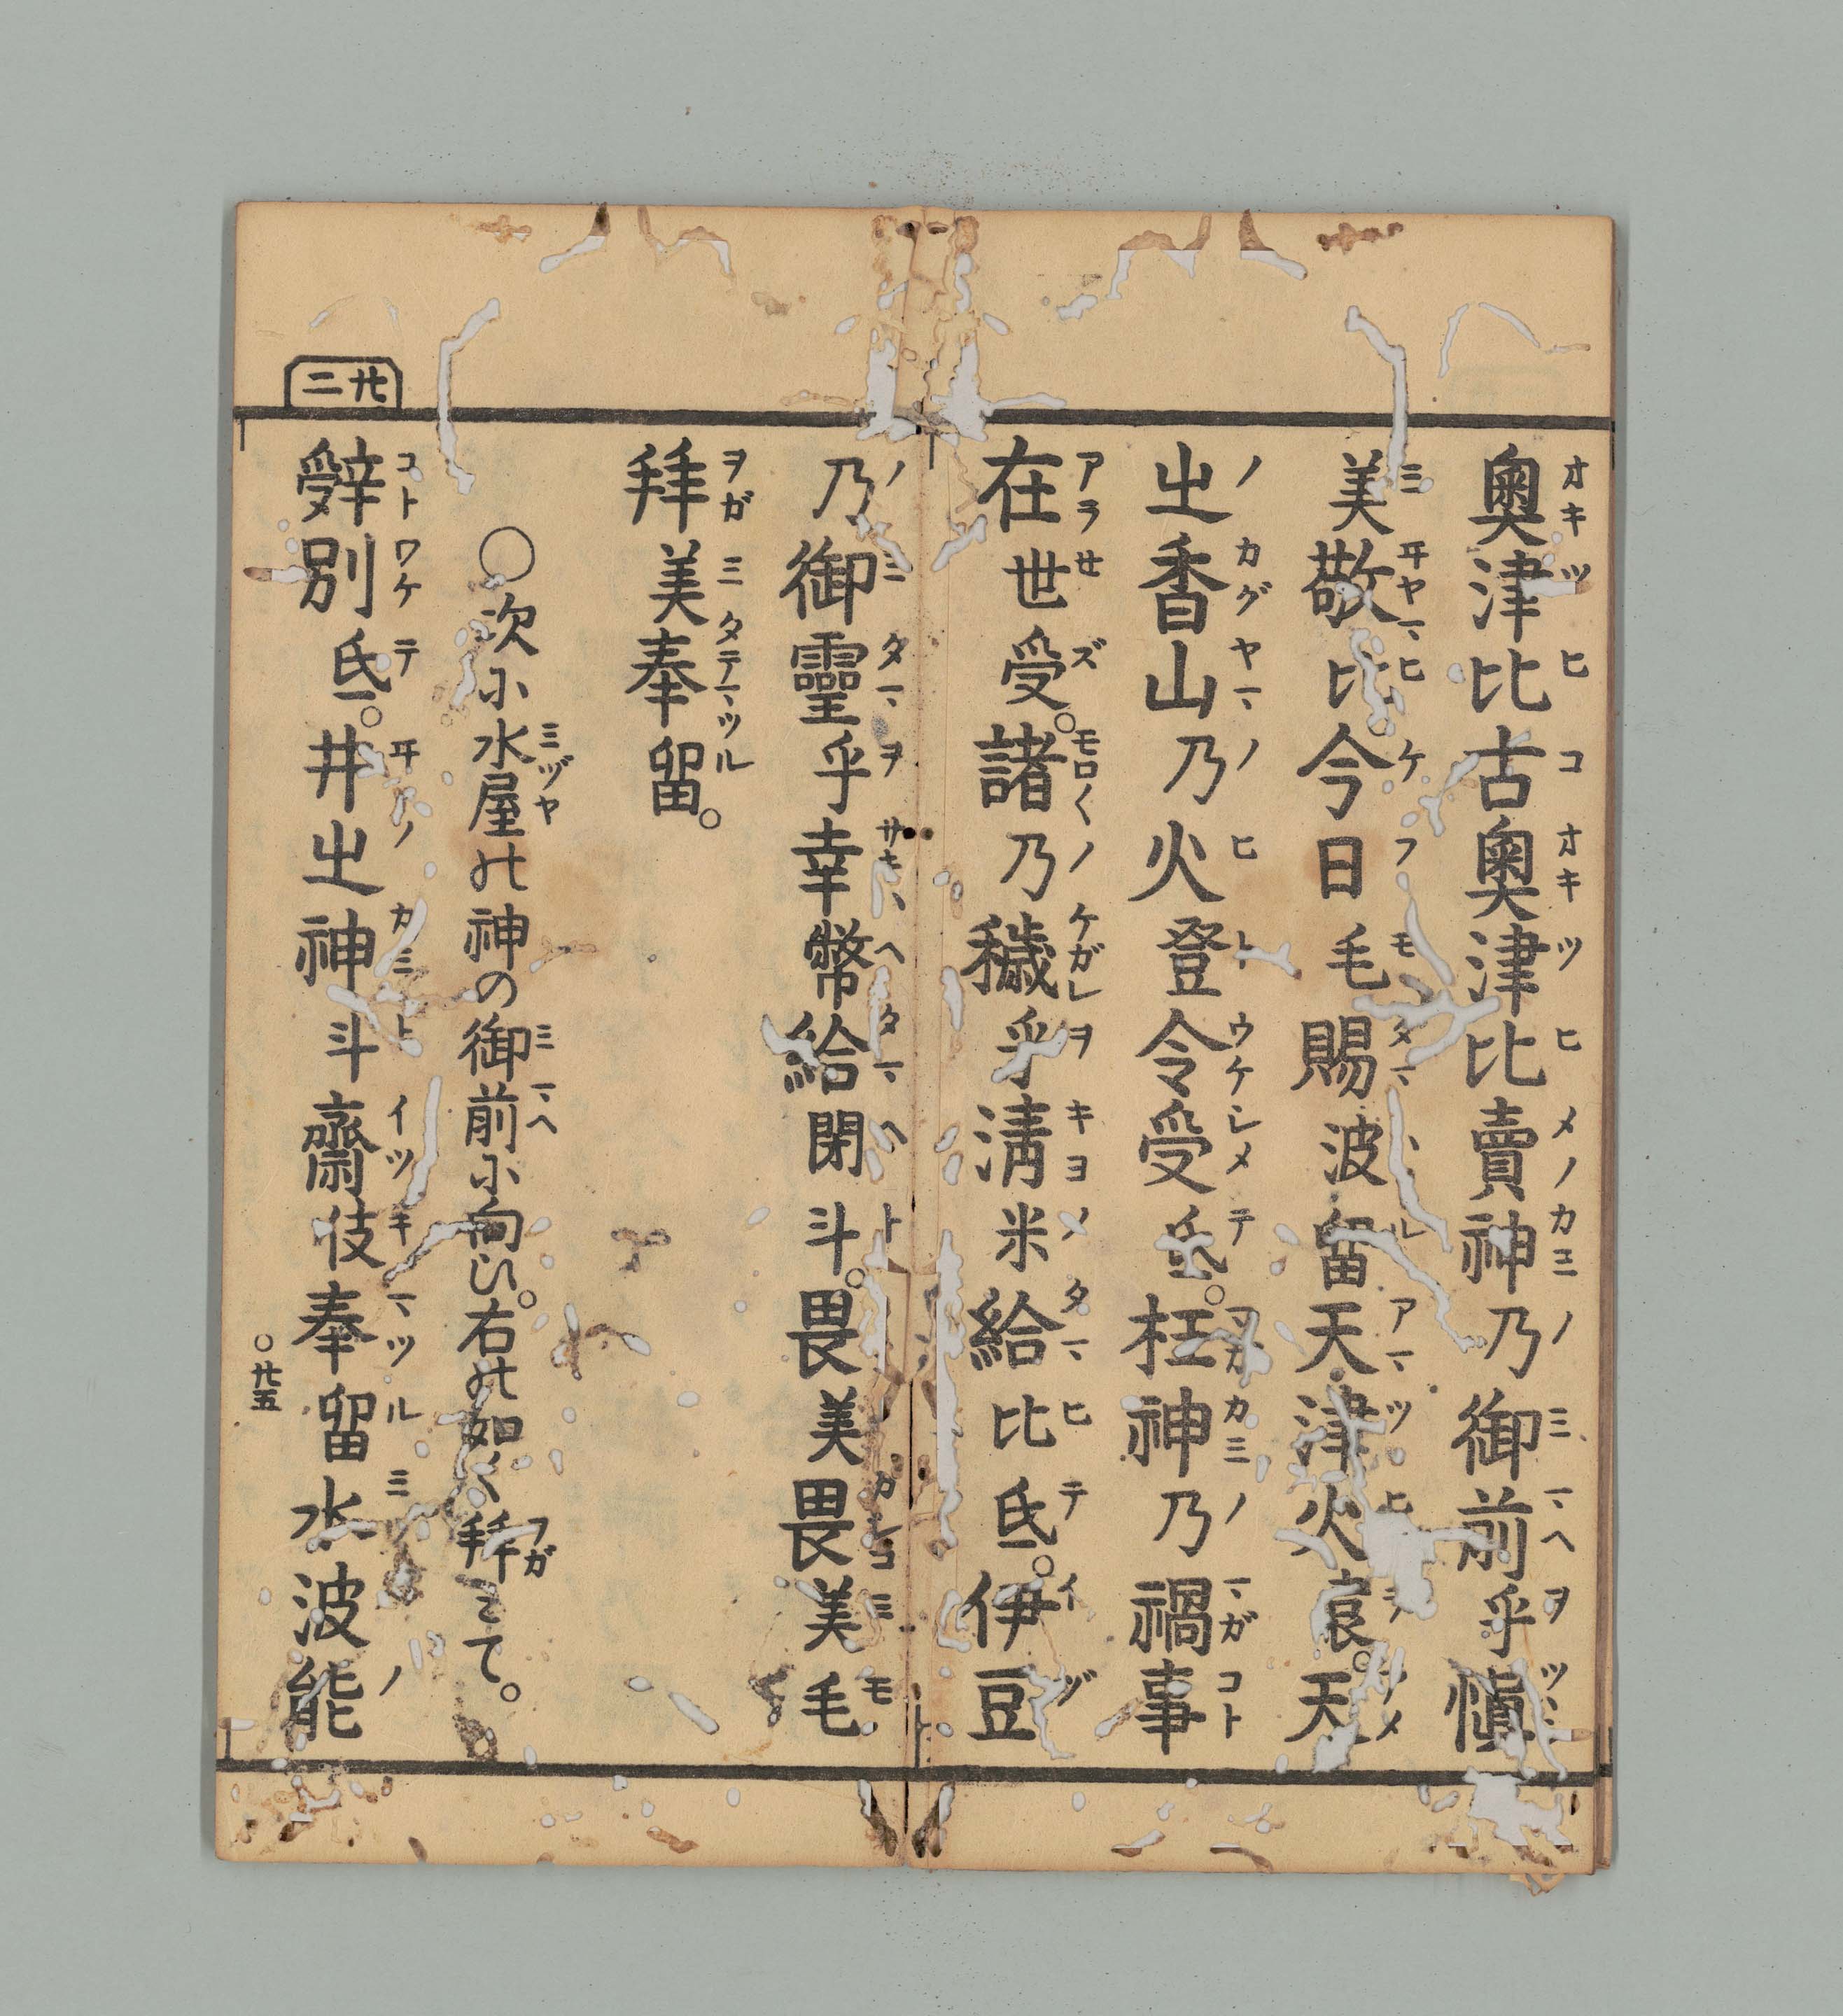 奧津比古奧津比賣神乃御前乎愼
美敬比。今日毛賜波留天津火哀。天
㞢香山乃火登令受氐。枉神乃禍事
在世受。諸乃穢乎淸米給比氐。伊豆
乃御靈乎幸幣給閇斗。畏美畏美毛
拜美奉留。
○次に水屋の神の御前に向ひ。右の如く拜みて。
辭別氐。井㞢神斗齋伎奉留水波能
廿二
○廿五